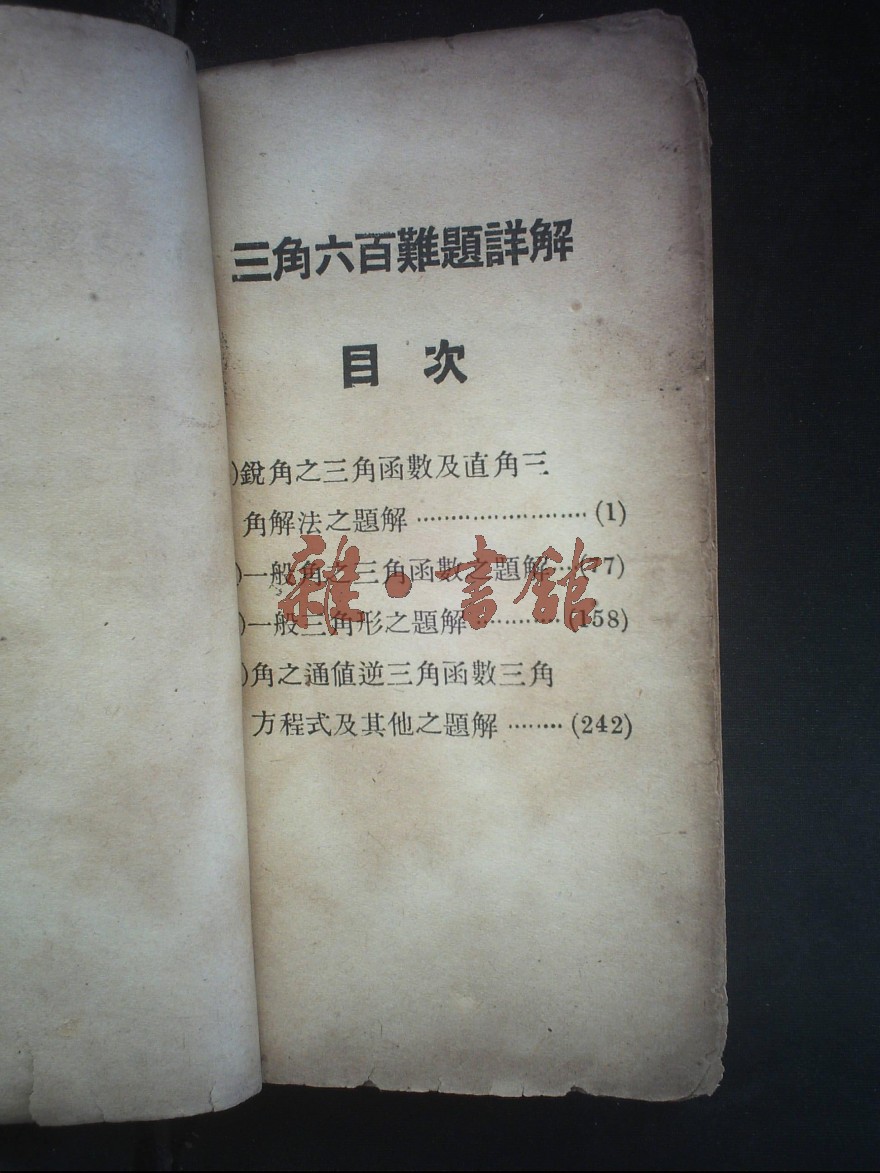 三角六百難題詳解
目次
)銳角之三角函數及直角三
角解法之題解 ························ (1)
)一般角之三角函數之題解 ··· ( 7)
)一般三角形之題解 ············ (158)
)角之通値逆三角函數三角
方程式及其他之題解 ········ (242)
雜·書館